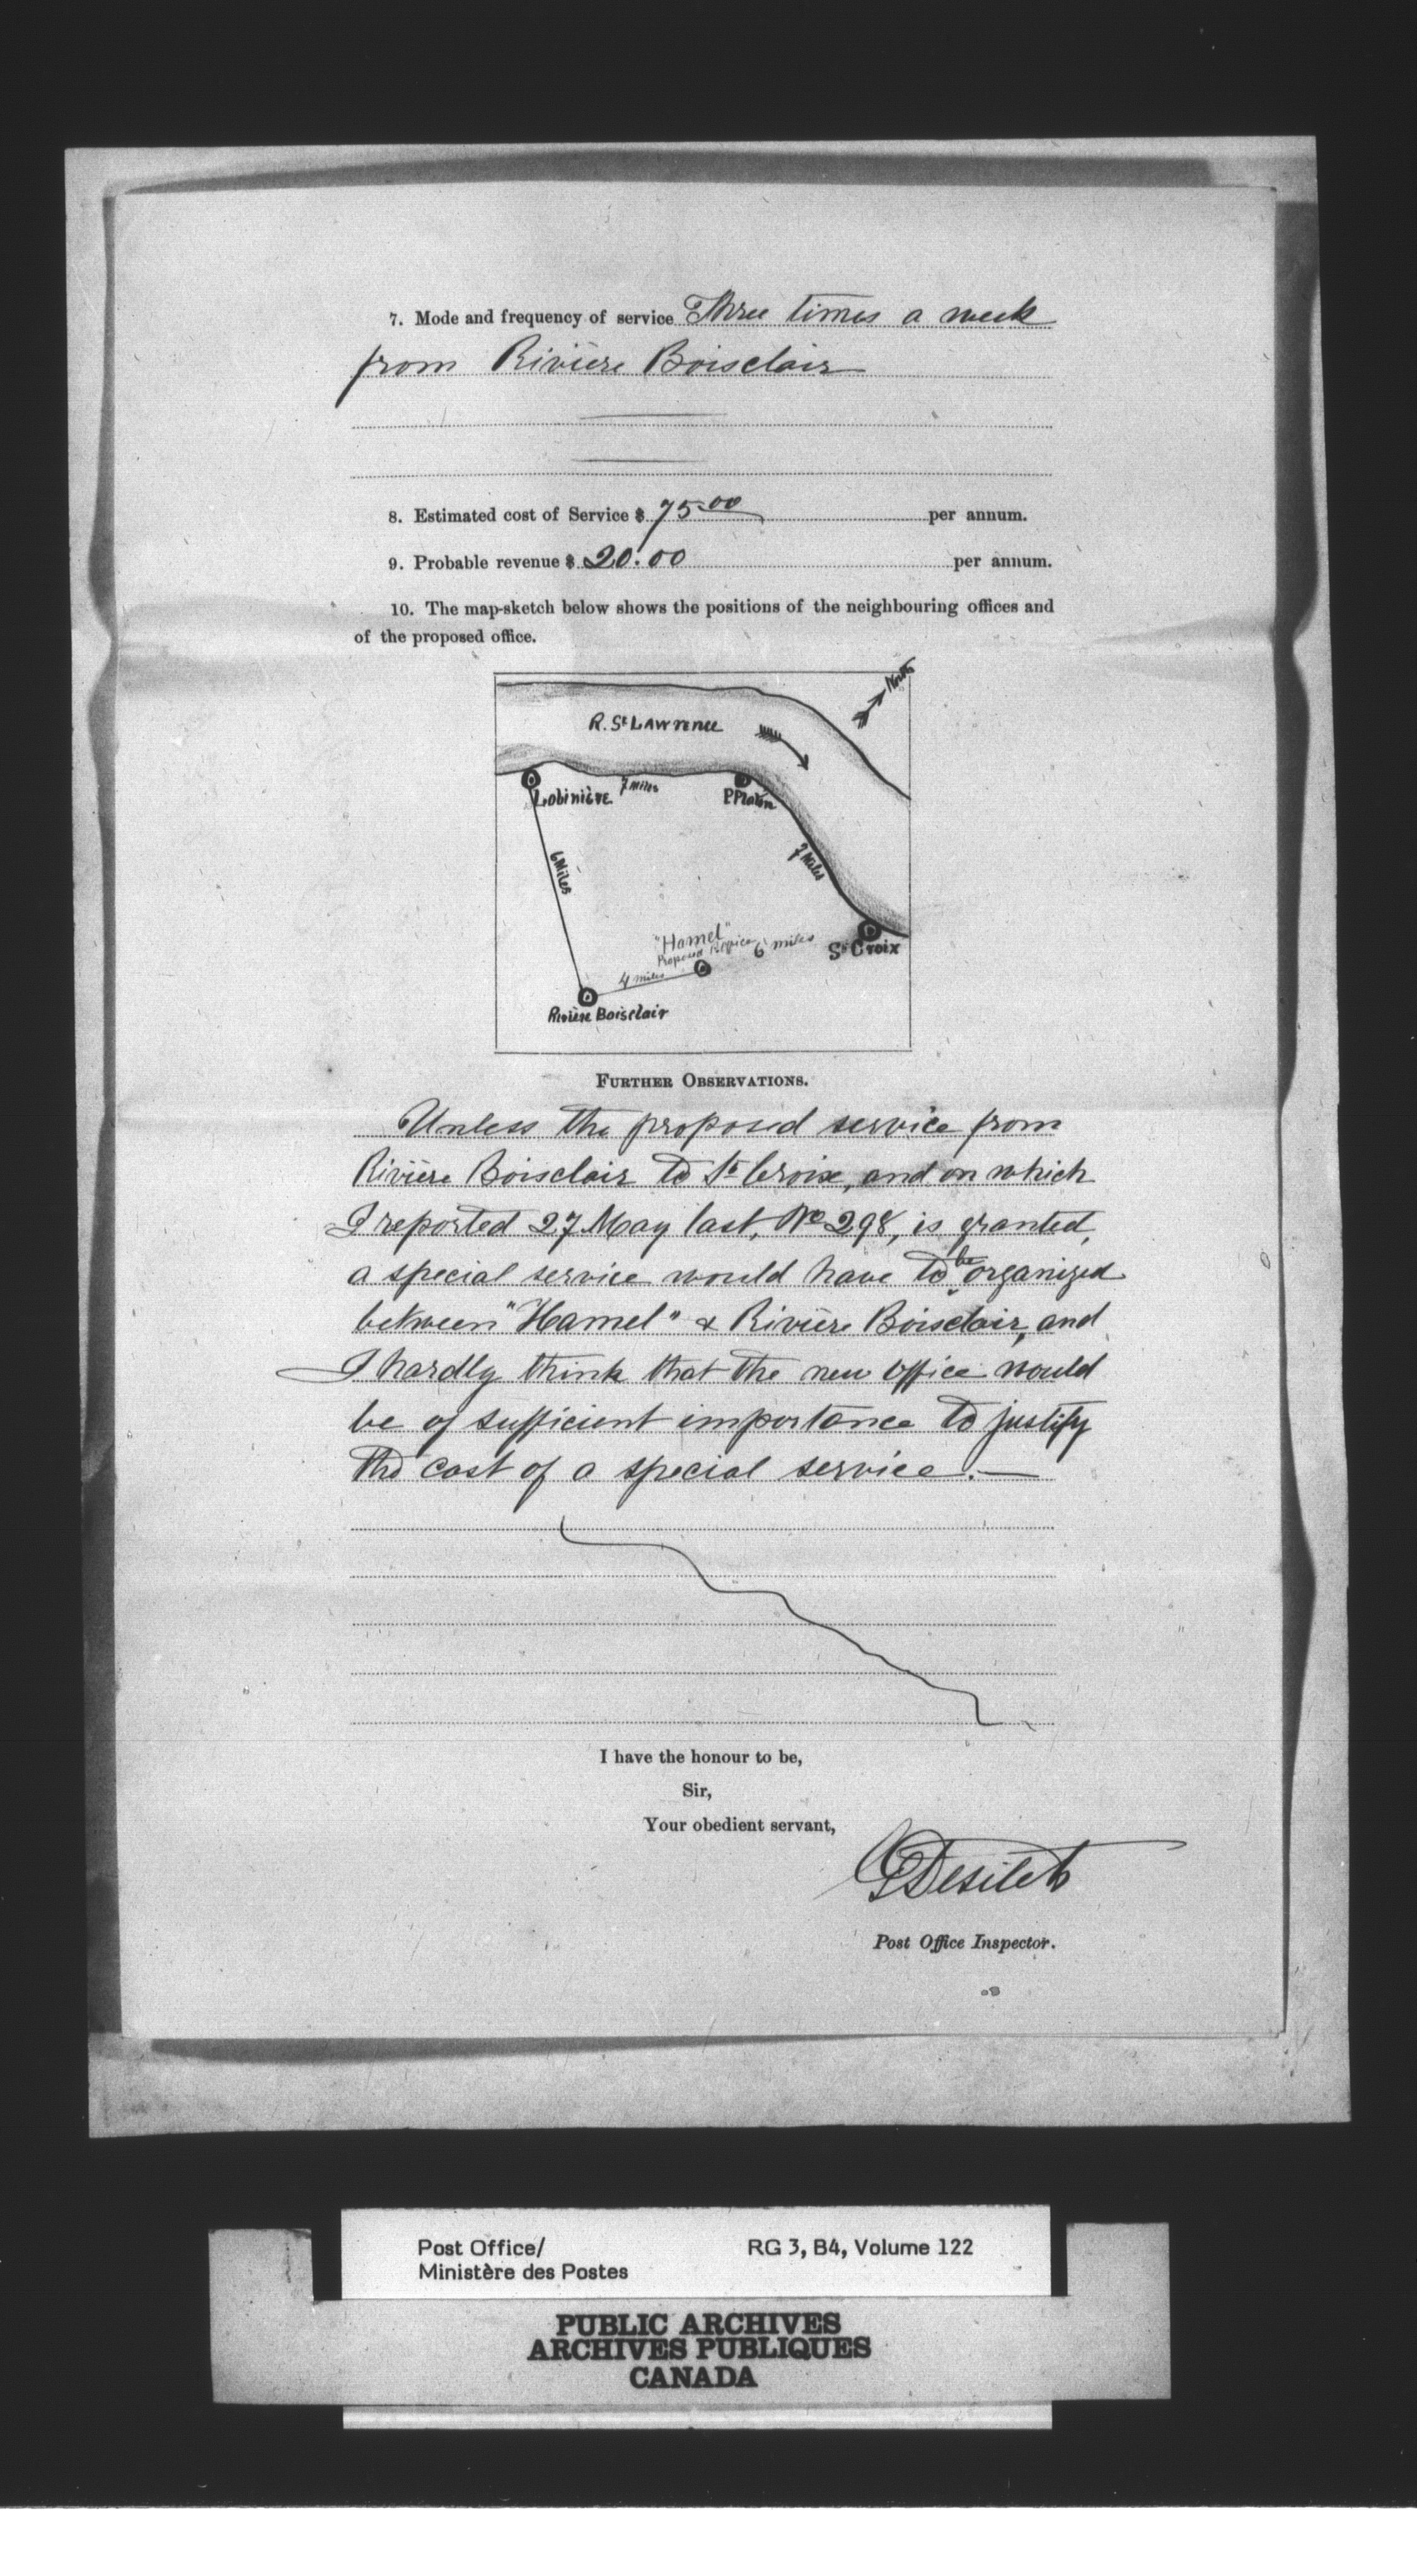 7. Mode and frequency of service Three times a week
from Rivière Boisclair
8. Estimated cost of Service $ 75.00 per annum.
9. Probable revenue $ 20.00 per annum.
10. The map-sketch below shows the positions of the neighbouring offices and
of the proposed office.
North
R. St LAWrence
Lobinière
7 miles
P Platon
6 Miles
7 Miles
"Hamel"
Proposed P. Office
6 miles
St Croix
4 miles
Rivière Boisclair
FURTHER OBSERVATIONS.
Unless the proposed service from
Rivière Boisclair to St Croix, and on which
I reported 27 May last, No 298, is granted,
a special service would have to be organized
between "Hamel" & Rivière Boisclair, and
I hardly think that the new office would
be of sufficient importance to justify
the cost of a special service.—
I have the honour to be,
Sir,
Your obedient servant,
Desilets
Post Office Inspector.
Post Office/ RG 3, B4, Volume 122
Ministère des Postes
PUBLIC ARCHIVES
ARCHIVES PUBLIQUES
CANADA